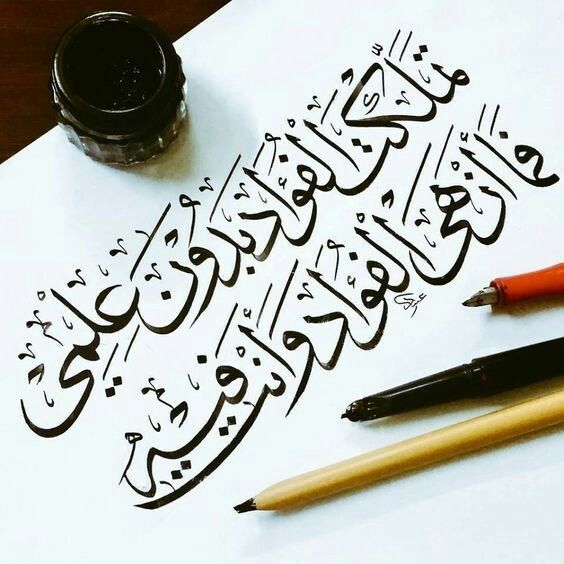 تملّكت الفؤاد بدون علمي
فما أزهى الفؤاد وأنت فيه